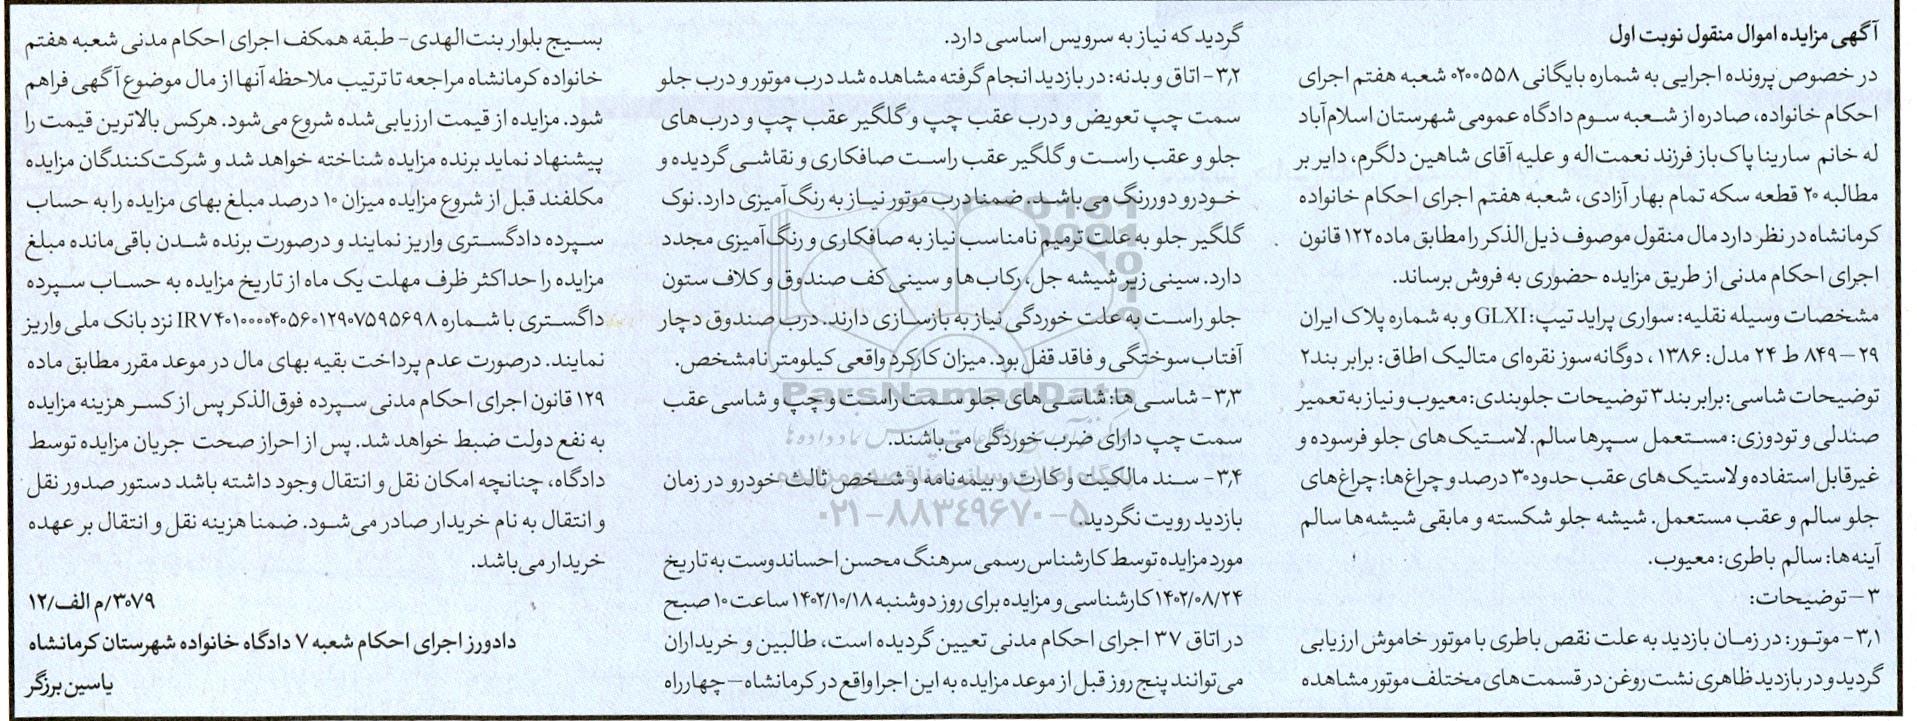 آگهی مزایده اموال منقول نوبت اول
در خصوص پرونده اجرایی به شماره بایگانی ۰۲۰۰۵۵۸ شعبه هفتم اجرای
احکام خانواده، صادره از شعبه سوم دادگاه عمومی شهرستان اسلام‌آباد
له خانم سارینا پاک‌باز فرزند نعمت‌اله و علیه آقای شاهین دلگرم، دایر بر
مطالبه ۲۰ قطعه سکه تمام بهار آزادی، شعبه هفتم اجرای احکام خانواده
کرمانشاه در نظر دارد مال منقول موصوف ذیل‌الذکر را مطابق ماده ۱۲۲ قانون
اجرای احکام مدنی از طریق مزایده حضوری به فروش برساند.
مشخصات وسیله نقلیه: سواری پراید تیپ: GLXI و به شماره پلاک ایران
۲۹–۸۴۹ ط ۲۴ مدل: ۱۳۸۶، دوگانه‌سوز نقره‌ای متالیک اطاق: برابر بند۲
توضیحات شاسی: برابر بند۳ توضیحات جلوبندی: معیوب و نیاز به تعمیر
صندلی و تودوزی: مستعمل سپرها سالم. لاستیک‌های جلو فرسوده و
غیرقابل استفاده و لاستیک‌های عقب حدود۳۰ درصد و چراغ‌ها: چراغ‌های
جلو سالم و عقب مستعمل. شیشه جلو شکسته و مابقی شیشه‌ها سالم
آینه‌ها: سالم باطری: معیوب.
۳–توضیحات:
۳٫۱- موتور: در زمان بازدید به علت نقص باطری با موتور خاموش ارزیابی
گردید و در بازدید ظاهری نشت روغن در قسمت‌های مختلف موتور مشاهده
گردید که نیاز به سرویس اساسی دارد.
۳٫۲- اتاق و بدنه: در بازدید انجام گرفته مشاهده شد درب موتور و درب جلو
سمت چپ تعویض و درب عقب چپ و گلگیر عقب چپ و درب‌های
جلو و عقب راست و گلگیر عقب راست صافکاری و نقاشی گردیده و
خودرو دوررنگ می‌باشد. ضمنا درب موتور نیاز به رنگ‌آمیزی دارد. نوک
گلگیر جلو به علت ترمیم نامناسب نیاز به صافکاری و رنگ‌آمیزی مجدد
دارد. سینی زیر شیشه جل، رکاب‌ها و سینی کف صندوق و کلاف ستون
جلو راست به علت خوردگی نیاز به بازسازی دارند. درب صندوق دچار
آفتاب‌سوختگی و فاقد قفل بود. میزان کارکرد واقعی کیلومتر نامشخص.
۳٫۳- شاسی‌ها: شاسی‌های جلو سمت راست و چپ و شاسی عقب
سمت چپ دارای ضرب‌خوردگی می‌باشند.
۳٫۴- سند مالکیت و کارت و بیمه‌نامه و شخص ثالث خودرو در زمان
بازدید رویت نگردید.
مورد مزایده توسط کارشناس رسمی سرهنگ محسن احساندوست به تاریخ
۱۴۰۲/۰۸/۲۴ کارشناسی و مزایده برای روز دوشنبه ۱۴۰۲/۱۰/۱۸ ساعت ۱۰ صبح
در اتاق ۳۷ اجرای احکام مدنی تعیین گردیده است، طالبین و خریداران
می‌توانند پنج روز قبل از موعد مزایده به این اجرا واقع در کرمانشاه–چهارراه
بسیج بلوار بنت‌الهدی- طبقه همکف اجرای احکام مدنی شعبه هفتم
خانواده کرمانشاه مراجعه تا ترتیب ملاحظه آنها از مال موضوع آگهی فراهم
شود. مزایده از قیمت ارزیابی شده شروع می‌شود. هرکس بالاترین قیمت را
پیشنهاد نماید برنده مزایده شناخته خواهد شد و شرکت‌کنندگان مزایده
مکلفند قبل از شروع مزایده میزان ۱۰ درصد مبلغ بهای مزایده را به حساب
سپرده دادگستری واریز نمایند و درصورت برنده شدن باقی‌مانده مبلغ
مزایده را حداکثر ظرف مهلت یک ماه از تاریخ مزایده به حساب سپرده
داگستری با شماره IR۷۴۰۱۰۰۰۰۴۰۵۶۰۱۲۹۰۷۵۹۵۶۹۸ نزد بانک ملی واریز
نمایند. درصورت عدم پرداخت بقیه بهای مال در موعد مقرر مطابق ماده
۱۲۹ قانون اجرای احکام مدنی سپرده فوق‌الذکر پس از کسر هزینه مزایده
به نفع دولت ضبط خواهد شد. پس از احراز صحت جریان مزایده توسط
دادگاه، چنانچه امکان نقل و انتقال وجود داشته باشد دستور صدور نقل
و انتقال به نام خریدار صادر می‌شود. ضمنا هزینه نقل و انتقال بر عهده
خریدار می‌باشد.
۳۰۷۹/م الف/۱۲
دادورز اجرای احکام شعبه ۷ دادگاه خانواده شهرستان کرمانشاه
یاسین برزگر
ParsNamadData
پایگاه اطلاع رسانی مناقصه و مزایده
۰۲۱–۸۸۳۴۹۶۷۰–۵